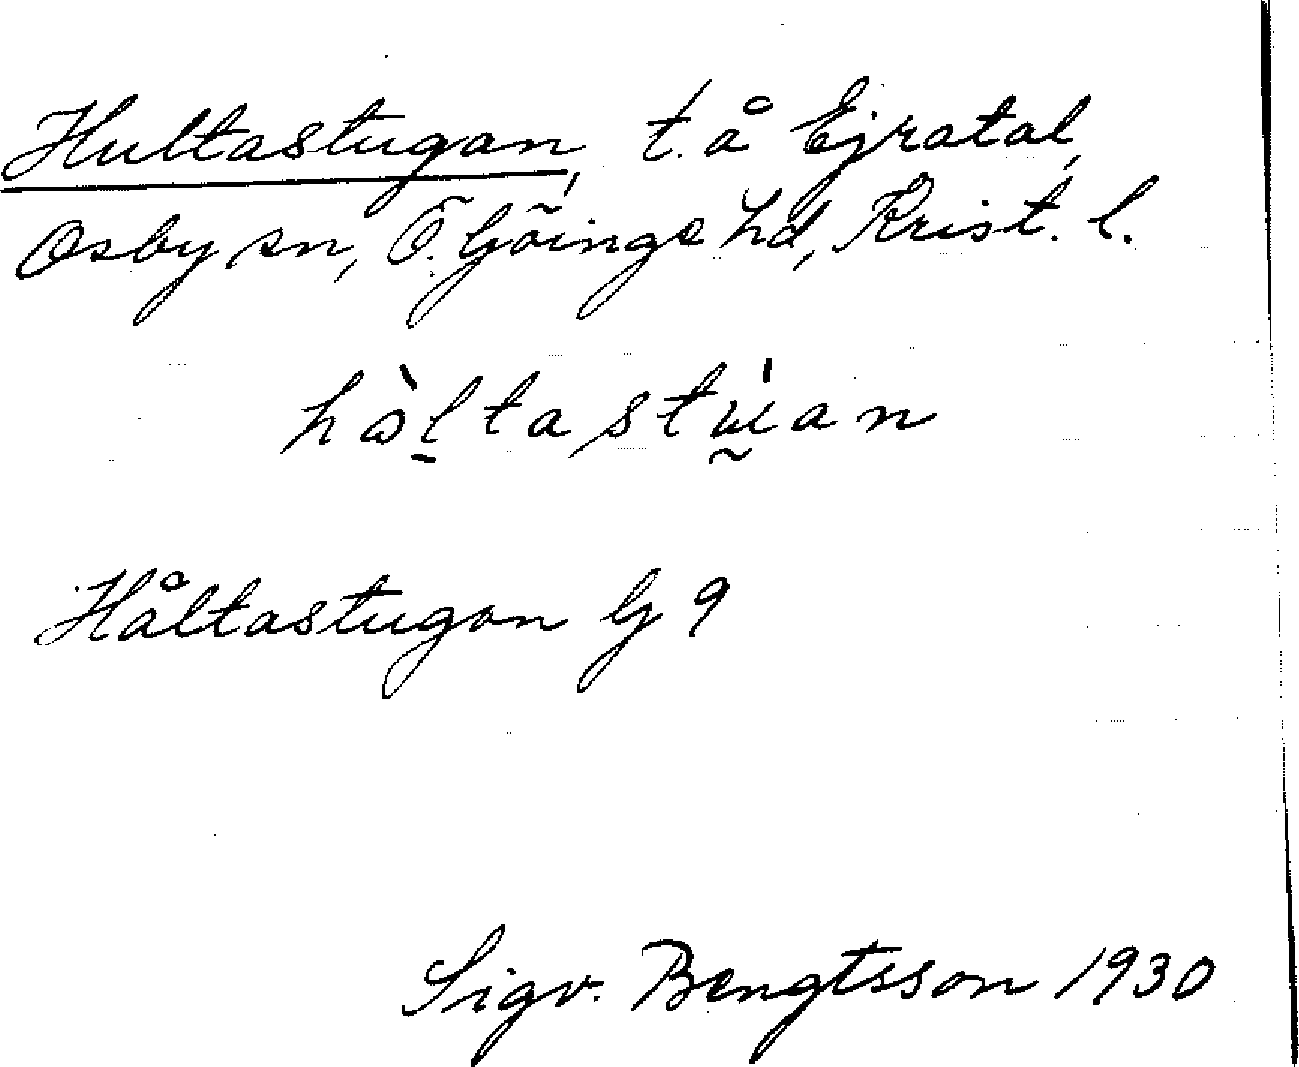 Hultastugan, t. å Ejratal,
Osby sn, Ö. Göinge hd, Krist. l.
Håltastugan G 9
Sigv. Bengtsson 1930